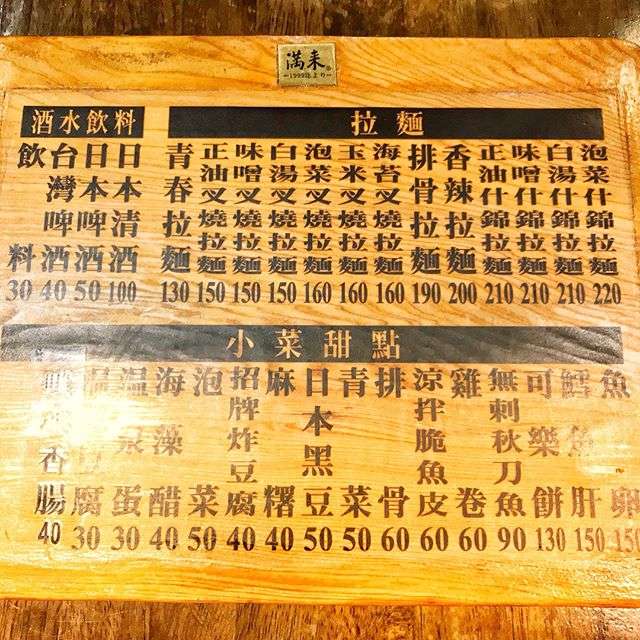 満来
1999年より
酒水飲料
飲料 30
台灣啤酒 40
日本啤酒 50
日本清酒 100
拉麵
青春拉麵 130
正油叉燒拉麵 150
味噌叉燒拉麵 150
白湯叉燒拉麵 150
泡菜叉燒拉麵 160
玉米叉燒拉麵 160
海苔叉燒拉麵 160
排骨拉麵 190
香辣拉麵 200
正油什錦拉麵 210
味噌什錦拉麵 210
白湯什錦拉麵 210
泡菜什錦拉麵 220
小菜甜點
香腸 40
腐 30
溫泉蛋 30
海藻醋 40
泡菜 50
招牌炸豆腐 40
麻糬 40
日本黑豆 50
青菜 50
排骨 60
涼拌脆魚皮 60
雞卷 60
無刺秋刀魚 90
可樂餅 130
鱈魚肝 150
魚卵 150